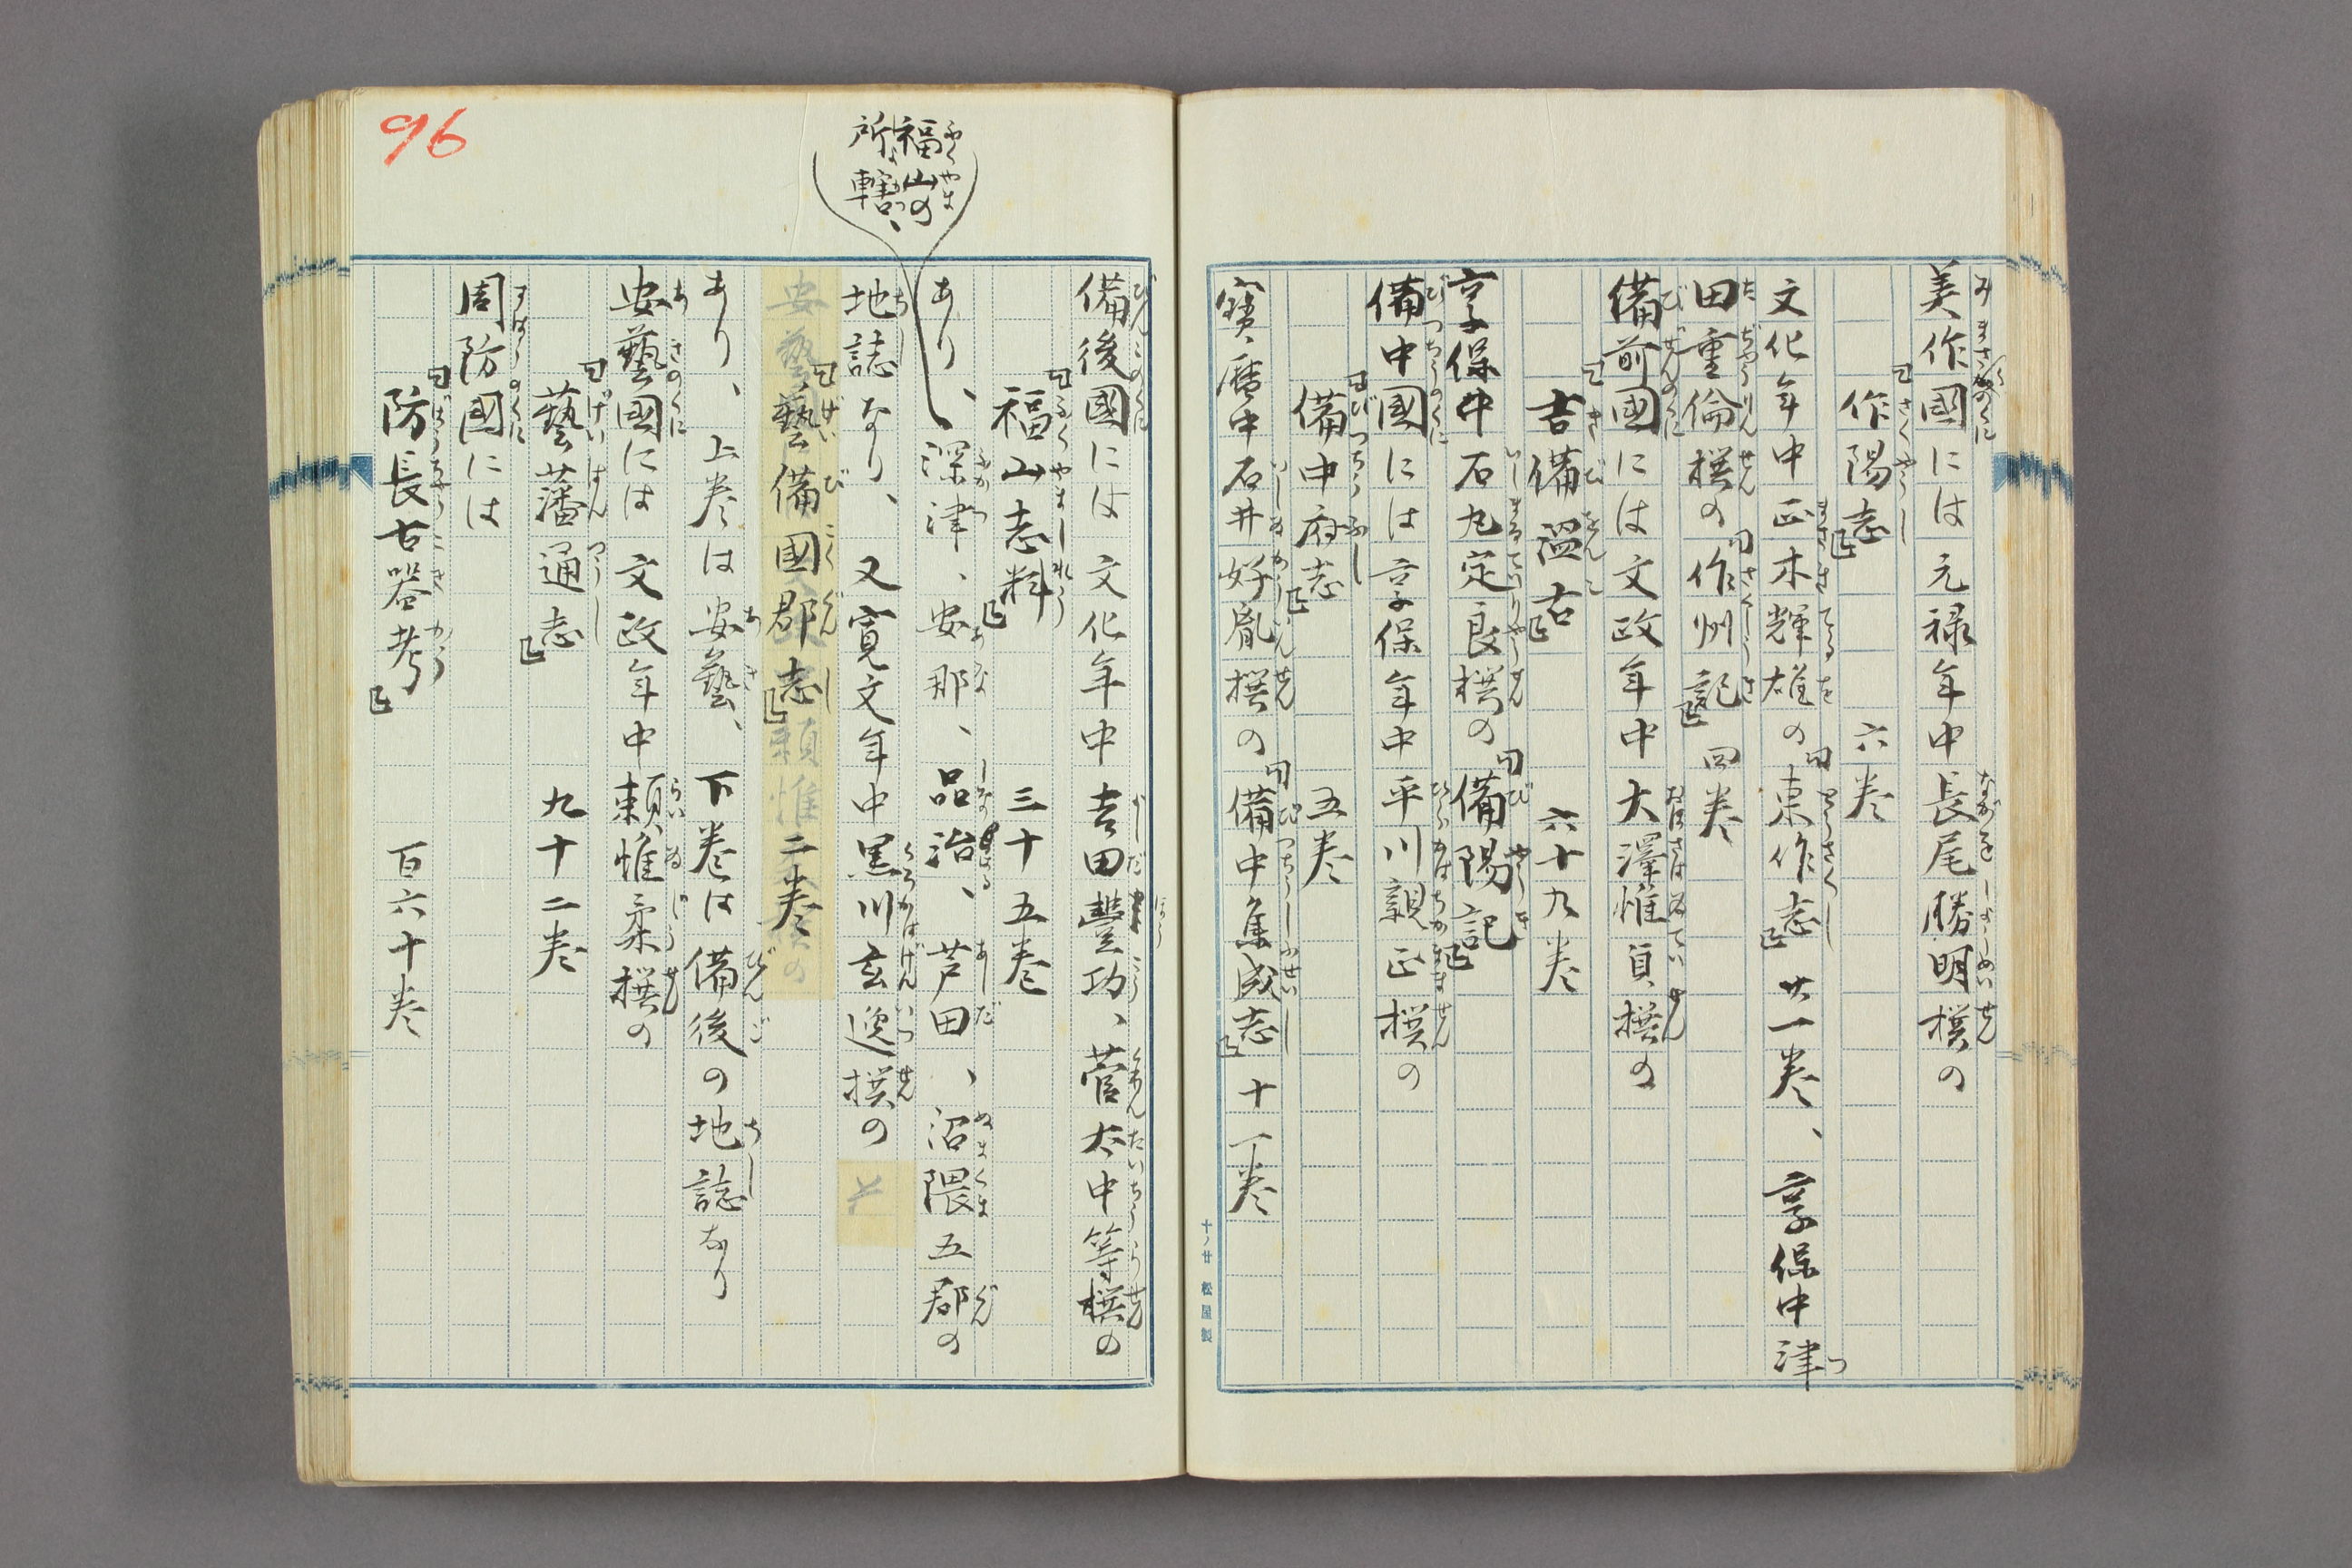 美作國には元禄年中長尾勝明撰の
作陽志　六巻
文化年中正木輝雄の東作志　廿一巻、享保中津
田重倫撰の作州記　四巻
備前國には文政年中大澤惟貞撰の
吉備温古　六十九巻
享保中石丸定良撰の備陽記
備中國には享保年中平川親正撰の
備中府志　五巻
寳暦中石井好胤撰の備中集成志　十一巻
十ノ廿　松屋製
96
備後國には文化年中吉田豊功、菅太中等撰の
福山志料　三十五巻
あり、福山の所轄、深津、安那、品治、芦田、沼隈五郡の
地誌なり、又寛文年中黒川玄逸撰の
藝備國郡志　二巻
あり、上巻は安藝、下巻は備後の地誌なり
安藝國には文政年中頼惟柔撰の
藝藩通志　九十二巻
周防國には
防長古器考　百六十巻